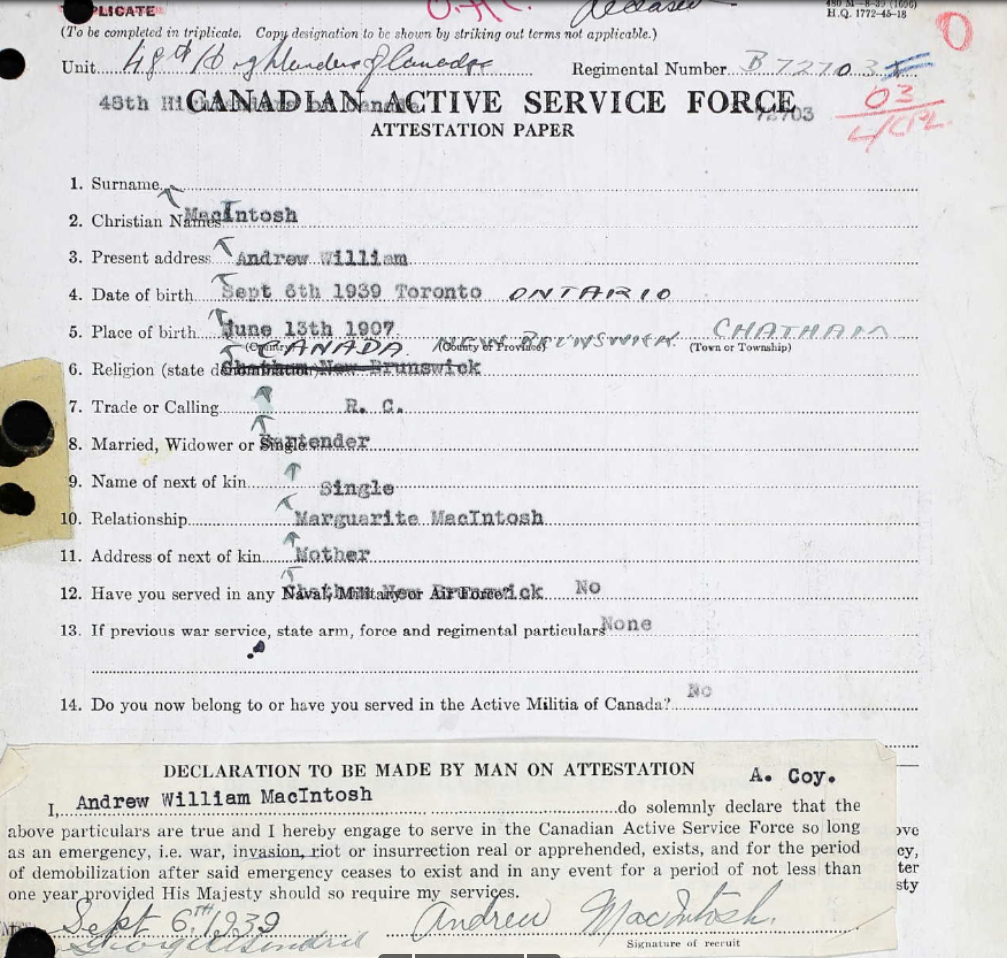 PLICATE
O.H.C. Deceased
480 M—8-39 (1606)
H.Q. 1772-45-18
(To be completed in triplicate. Copy designation to be shown by striking out terms not applicable.)
Unit 48th Highlanders of Canada Regimental Number B 72703
48th Highlanders of Canada
CANADIAN ACTIVE SERVICE FORCE
72703
03
L/CPL.
ATTESTATION PAPER
1. Surname
2. Christian Names MacIntosh
3. Present address Andrew William
4. Date of birth Sept 6th 1939 Toronto ONTARIO
5. Place of birth June 13th 1907
CANADA NEW BRUNSWICK CHATHAM
(Country) (County or Province) (Town or Township)
6. Religion (state denomination) Chatham New Brunswick
7. Trade or Calling R. C.
8. Married, Widower or Single Bartender
9. Name of next of kin Single
10. Relationship Marguarite MacIntosh
11. Address of next of kin Mother
12. Have you served in any Naval, Military or Air Force? Chatham New Brunswick No
13. If previous war service, state arm, force and regimental particulars None
14. Do you now belong to or have you served in the Active Militia of Canada? No
DECLARATION TO BE MADE BY MAN ON ATTESTATION A. Coy.
I, Andrew William MacIntosh do solemnly declare that the
above particulars are true and I hereby engage to serve in the Canadian Active Service Force so long
as an emergency, i.e. war, invasion, riot or insurrection real or apprehended, exists, and for the period
of demobilization after said emergency ceases to exist and in any event for a period of not less than
one year provided His Majesty should so require my services.
Sept 6TH 1939 Andrew MacIntosh
Signature of recruit